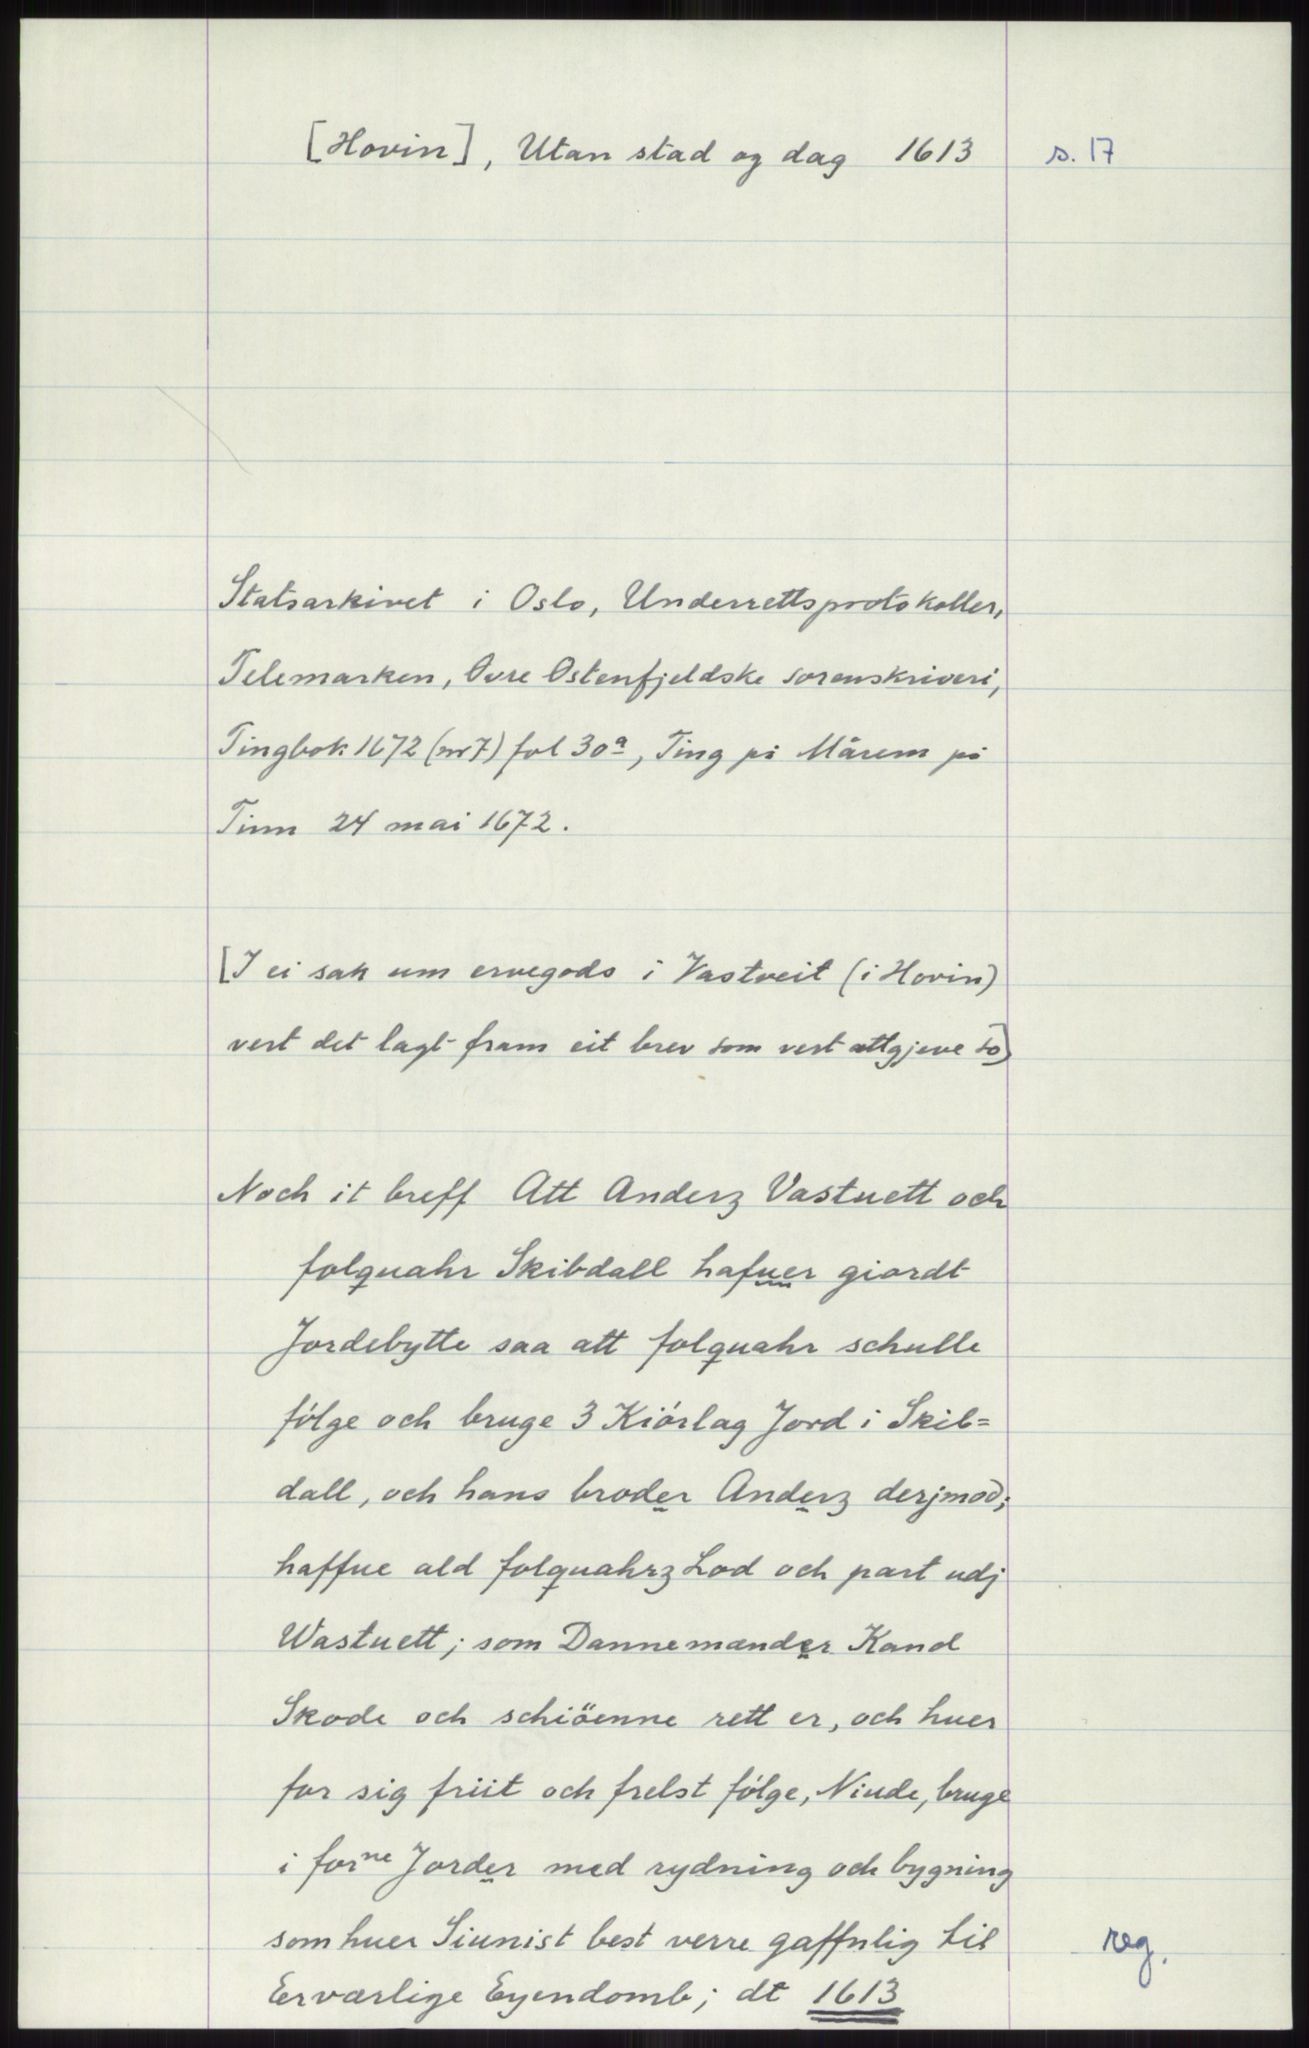 [Hovin], Utan stad og dag 1613 s. 17
Statsarkivet i Oslo, Underrettsprotokoller,
Telemarken, Øvre Østenfjeldske sorenskriveri,
Tingbok 1672 (nr 7) fol 30a, Ting på Mårem på
Tinn 24 mai 1672.
[I ei sak um ervegods i Vastveit (i Hovin)
vert det lagt fram eit brev som vert attgjeve so]
Noch it breff Att Anderz Vastuett och
folquahr Skibdall hafuer giordt
Jordebytte saa att folquahr schulle
følge och bruge 3 Kiørlag Jord i Skib=
dall, och hans broder Anderz derjmod;
haffue ald folquahrz Lod och part udj
Wastuett; som Dannemænder Kand
Skode och schiöenne rett er, och huer
for sig friit och frelst følge, Niude, bruge
i forne Jorder med rydning och bygning
som huer Siunist best verre gaffnlig til
Erværlige Eyendomb; dt 1613
reg.